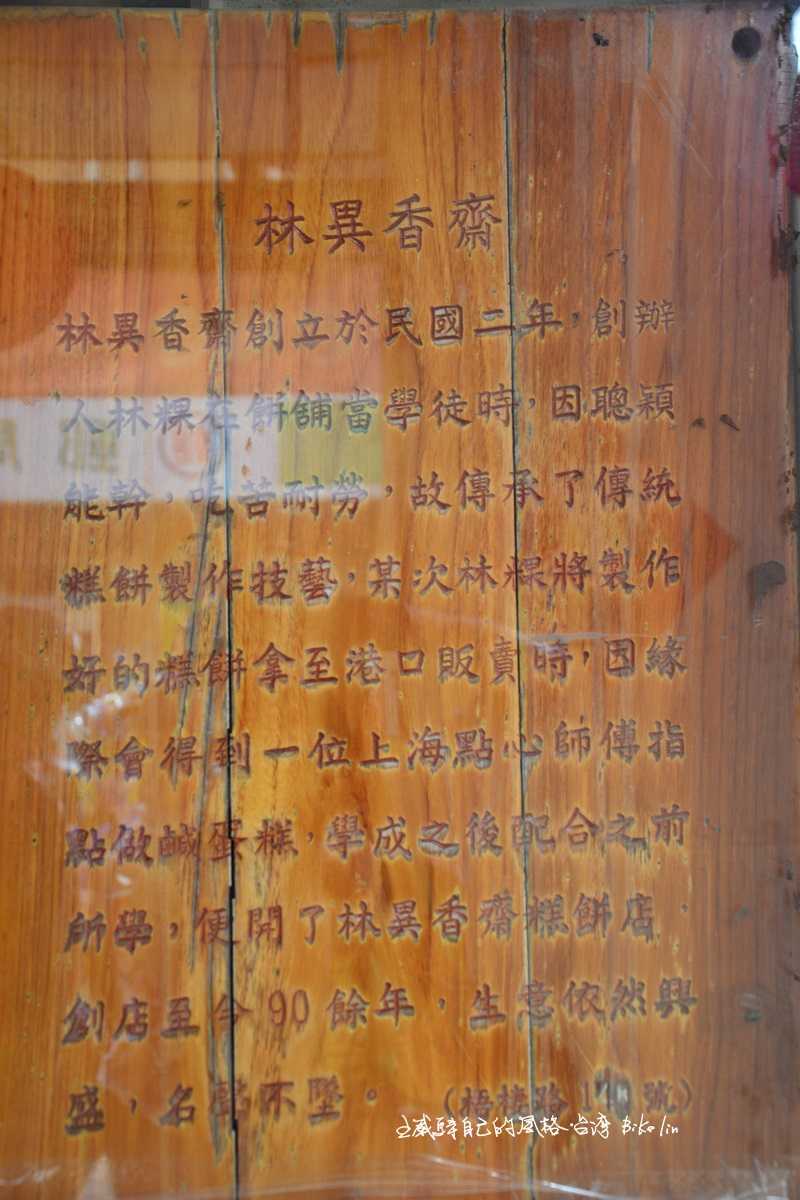 林異香齋
林異香齋創立於民國二年，創辦
人林粿在餅舖當學徒時，因聰穎
能幹，吃苦耐勞，故傳承了傳統
糕餅製作技藝，某次林粿將製作
好的糕餅拿至港口販賣時，因緣
際會得到一位上海點心師傅指
點做鹹蛋糕，學成之後配合之前
所學，便開了林異香齋糕餅店．
創店至今90餘年，生意依然興
盛，名聲不墜。（梧棲路 號）
自己的風格.台灣 Biko lin